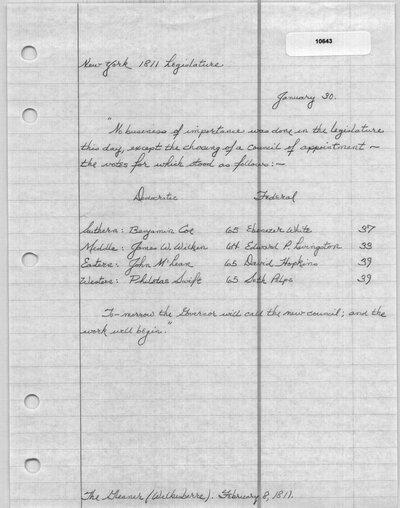 10643
New York 1811 Legislature
January 30.
"No business of importance was done in the legislature
this day, except the chosing of a council of appointment —
the votes for which stood as follows:—
Democratic Federal
Suthern: Benjamin Coe 65 Ebenezer White 37
Middle: James W. Wilkin 64 Edward P. Livingston 33
Eastern: John McLean 65 David Hopkins 39
Western: Philetas Swift 65 Seth Phlps 39
To-morrow the Governor will call the new council; and the
work will begin."
The Gleaner (Wilkesberre). February 8, 1811.